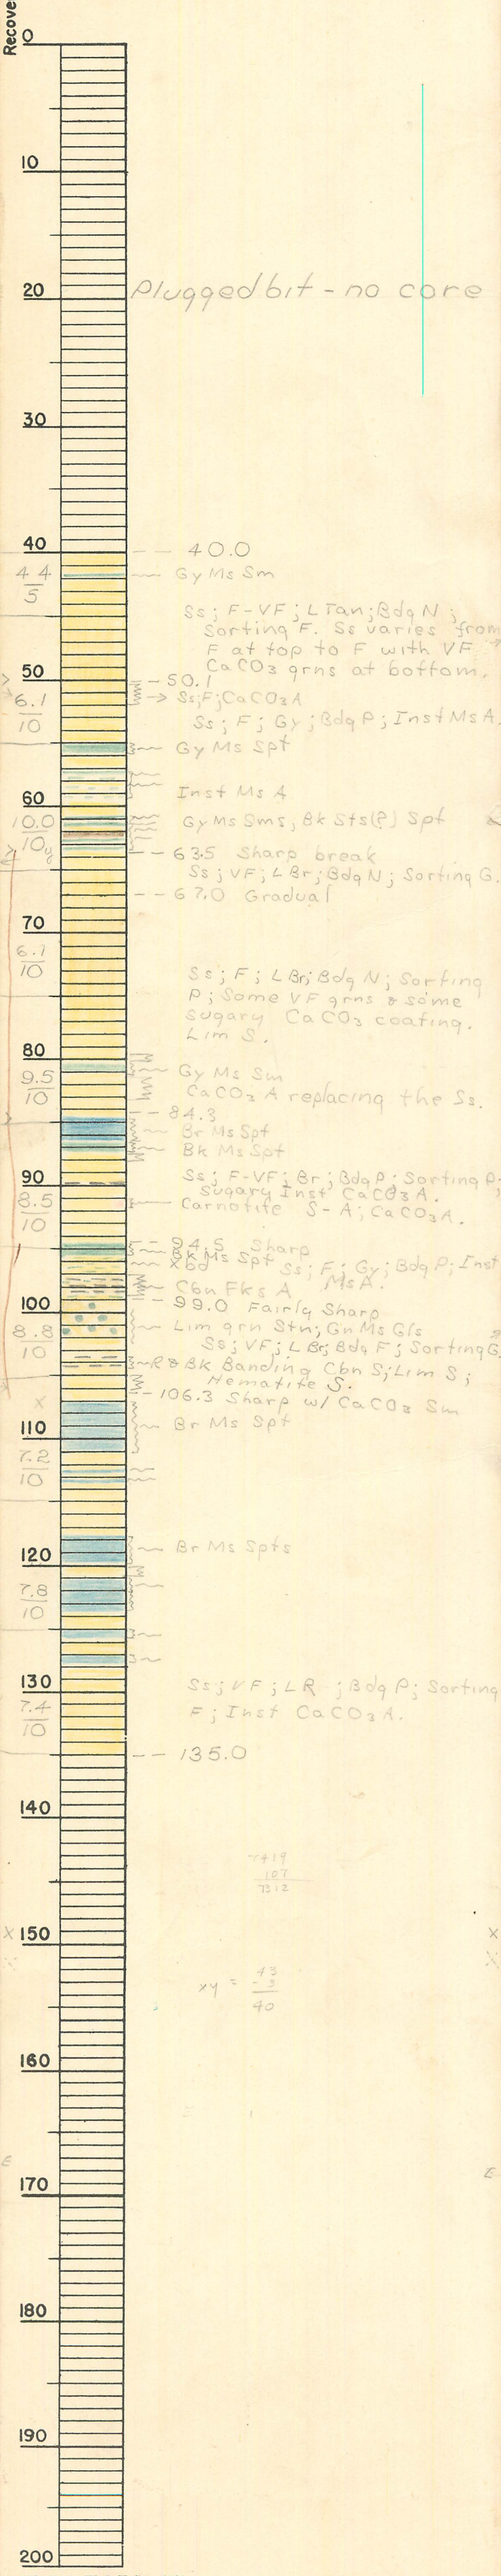 Recove
0
10
20 Plugged bit - no core
30
40 -- 40.0
4.4
5
Gy Ms Sm
Ss; F-VF; L Tan; Bdg N;
Sorting F. Ss varies from
F at top to F with VF
CaCO3 grns at bottom.
50 - 50.1
6.1
10
Ss; F; CaCO3 A
Ss; F; Gy; Bdg P; Inst Ms A.
Gy Ms Spt
Inst Ms A
60
10.0
10
Gy Ms Sms, Bk Sts(?) Spt
-- 63.5 Sharp break
Ss; VF; L Br; Bdg N; Sorting G.
-- 67.0 Gradual
70
6.1
10
Ss; F; L Br; Bdg N; Sorting
P; Some VF grns & some
sugary CaCO3 coating.
Lim S.
80
9.5
10
Gy Ms Sm
CaCO3 A replacing the Ss.
-- 84.3
Br Ms Spt
Bk Ms Spt
90
Ss; F-VF; Br; Bdg P; Sorting P;
Sugary Inst CaCO3 A.
8.5
10
Carnotite S-A; CaCO3 A.
-- 94.5 Sharp
Bk Ms Spt
Xbd
Ss; F; Gy; Bdg P; Inst
Ms A.
Cbn Fks A
-- 99.0 Fairly Sharp
100
8.8
10
Lim grn Stn; Gn Ms Gls
Ss; VF; L Br; Bdg F; Sorting G.
R & Bk Banding Cbn S; Lim S;
Hematite S.
-- 106.3 Sharp w/ CaCO3 Sm
x
110
Br Ms Spt
7.2
10
120
Br Ms Spts
7.8
10
130
Ss; VF; LR ; Bdg P; Sorting
F; Inst CaCO3 A.
7.4
10
-- 135.0
140
7419
107
7312
x 150 x
xy = 43
- 3
40
160
E
170 E
180
190
200